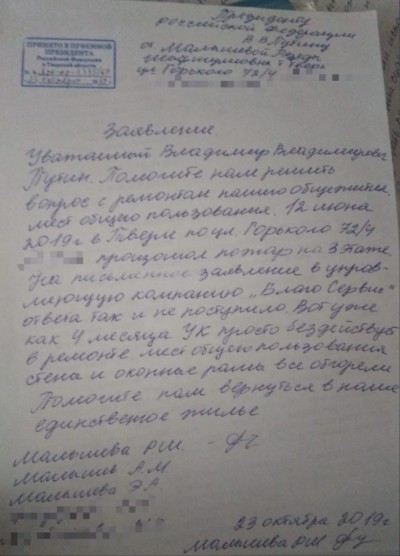 Президенту
Российской Федерации
В.В. Путину
от Малышевой
г. Тверь
ул Горького 72/4
ПРИНЯТО В ПРИЕМНОЙ
ПРЕЗИДЕНТА
Российской Федерации
в Тверской области
Заявление
Уважаемый Владимир Владимирович
Путин. Помогите нам решить
вопрос с ремонтом нашего общежития,
мест общего пользования. 12 июня
2019г в Твери по ул. Горького 72/4
произошол пожар на 3 этаже.
На письменное заявление в управ-
ляющую компанию „Благо Сервис"
ответа так и не поступило. Вот уже
как 4 месяца УК просто бездействует
в ремонте мест общего пользования
стена и оконные рамы все обгорели
Помогите нам вернуться в наше
единственное жилье
Малышева Р.И.
Малышев А.М.
Малышева Э.А.
23 октября 2019г
Малышева Р.И.